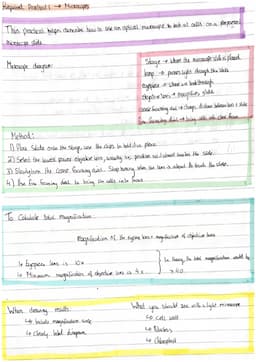 Required Practical 1 → Microscopes
This practical helps describe how to use an optical microscope to look at cells on a prepared
microscope slide.
Microscope diagram:
Stage → where the microscope slide is placed
lamp → passes light through the slide
eyepiece → where we look through
objective lens → magnifies slide
coarse focusing dial → changes distance between lens + slide
fine focusing dial → bring cells into clear focus
Method:
1) Place slide onto the stage, use the clips to hold it in place
2) Select the lowest power objective lens,
3) Slowly turn the coarse focusing dial. Stop turning when the lens is about to touch the slide.
4) Use fine focusing dial to bring the cells into focus
To Calculate total magnification:
Magnification of the eyepiece lens × magnification of objective lens
↳ Eyepiece lens is 10x
↳ Minimum magnification of objective lens is 4x
So therefore, the total magnification would be
x40
When drawing results:
↳ Include magnification
↳ Clearly label diagram
What you should see with a light microscope
↳ Cell wall
↳ Nucleus
↳ Chloroplast